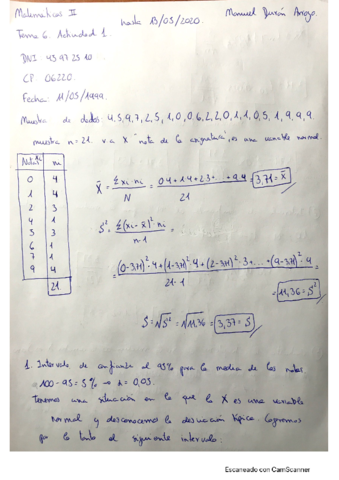 Matematicas II hasta 13/05/2020. Manuel Durán Arroyo.
Tema 6. Actividad 1.
DNI 43972310
CP 06220.
Fecha: 11/05/1999.
Muestra de datos: 4,5,9,7,2,5,1,0,0,6,2,2,0,1,1,0,5,1,9,9,9
muestra n=21. v.a X "nota de la asignatura", es una variable normal.
Notas ni
0 4
1 4
2 3
4 1
5 3
6 1
7 1
9 4
21
X̄ = Σ xi ni / N = 0·4+1·4+2·3+ ... +9·4 / 21 = 3,71 = x̄
S² = Σ(xi - x̄)² ni / n-1
= (0-3,71)²·4+(1-3,71)²·4+(2-3,71)²·3+...+(9-3,71)²·4 / 21-1 = 11,36 = S²
S = √S² = √11,36 = 3,37 = S
1. Intervalo de confianza al 95% para la media de las notas
100-95 = 5% →
= 0,05.
Tenemos una situación en la que la X es una variable
normal y desconocemos la desviación típica
por lo tanto el siguiente intervalo.
Escaneado con CamScanner